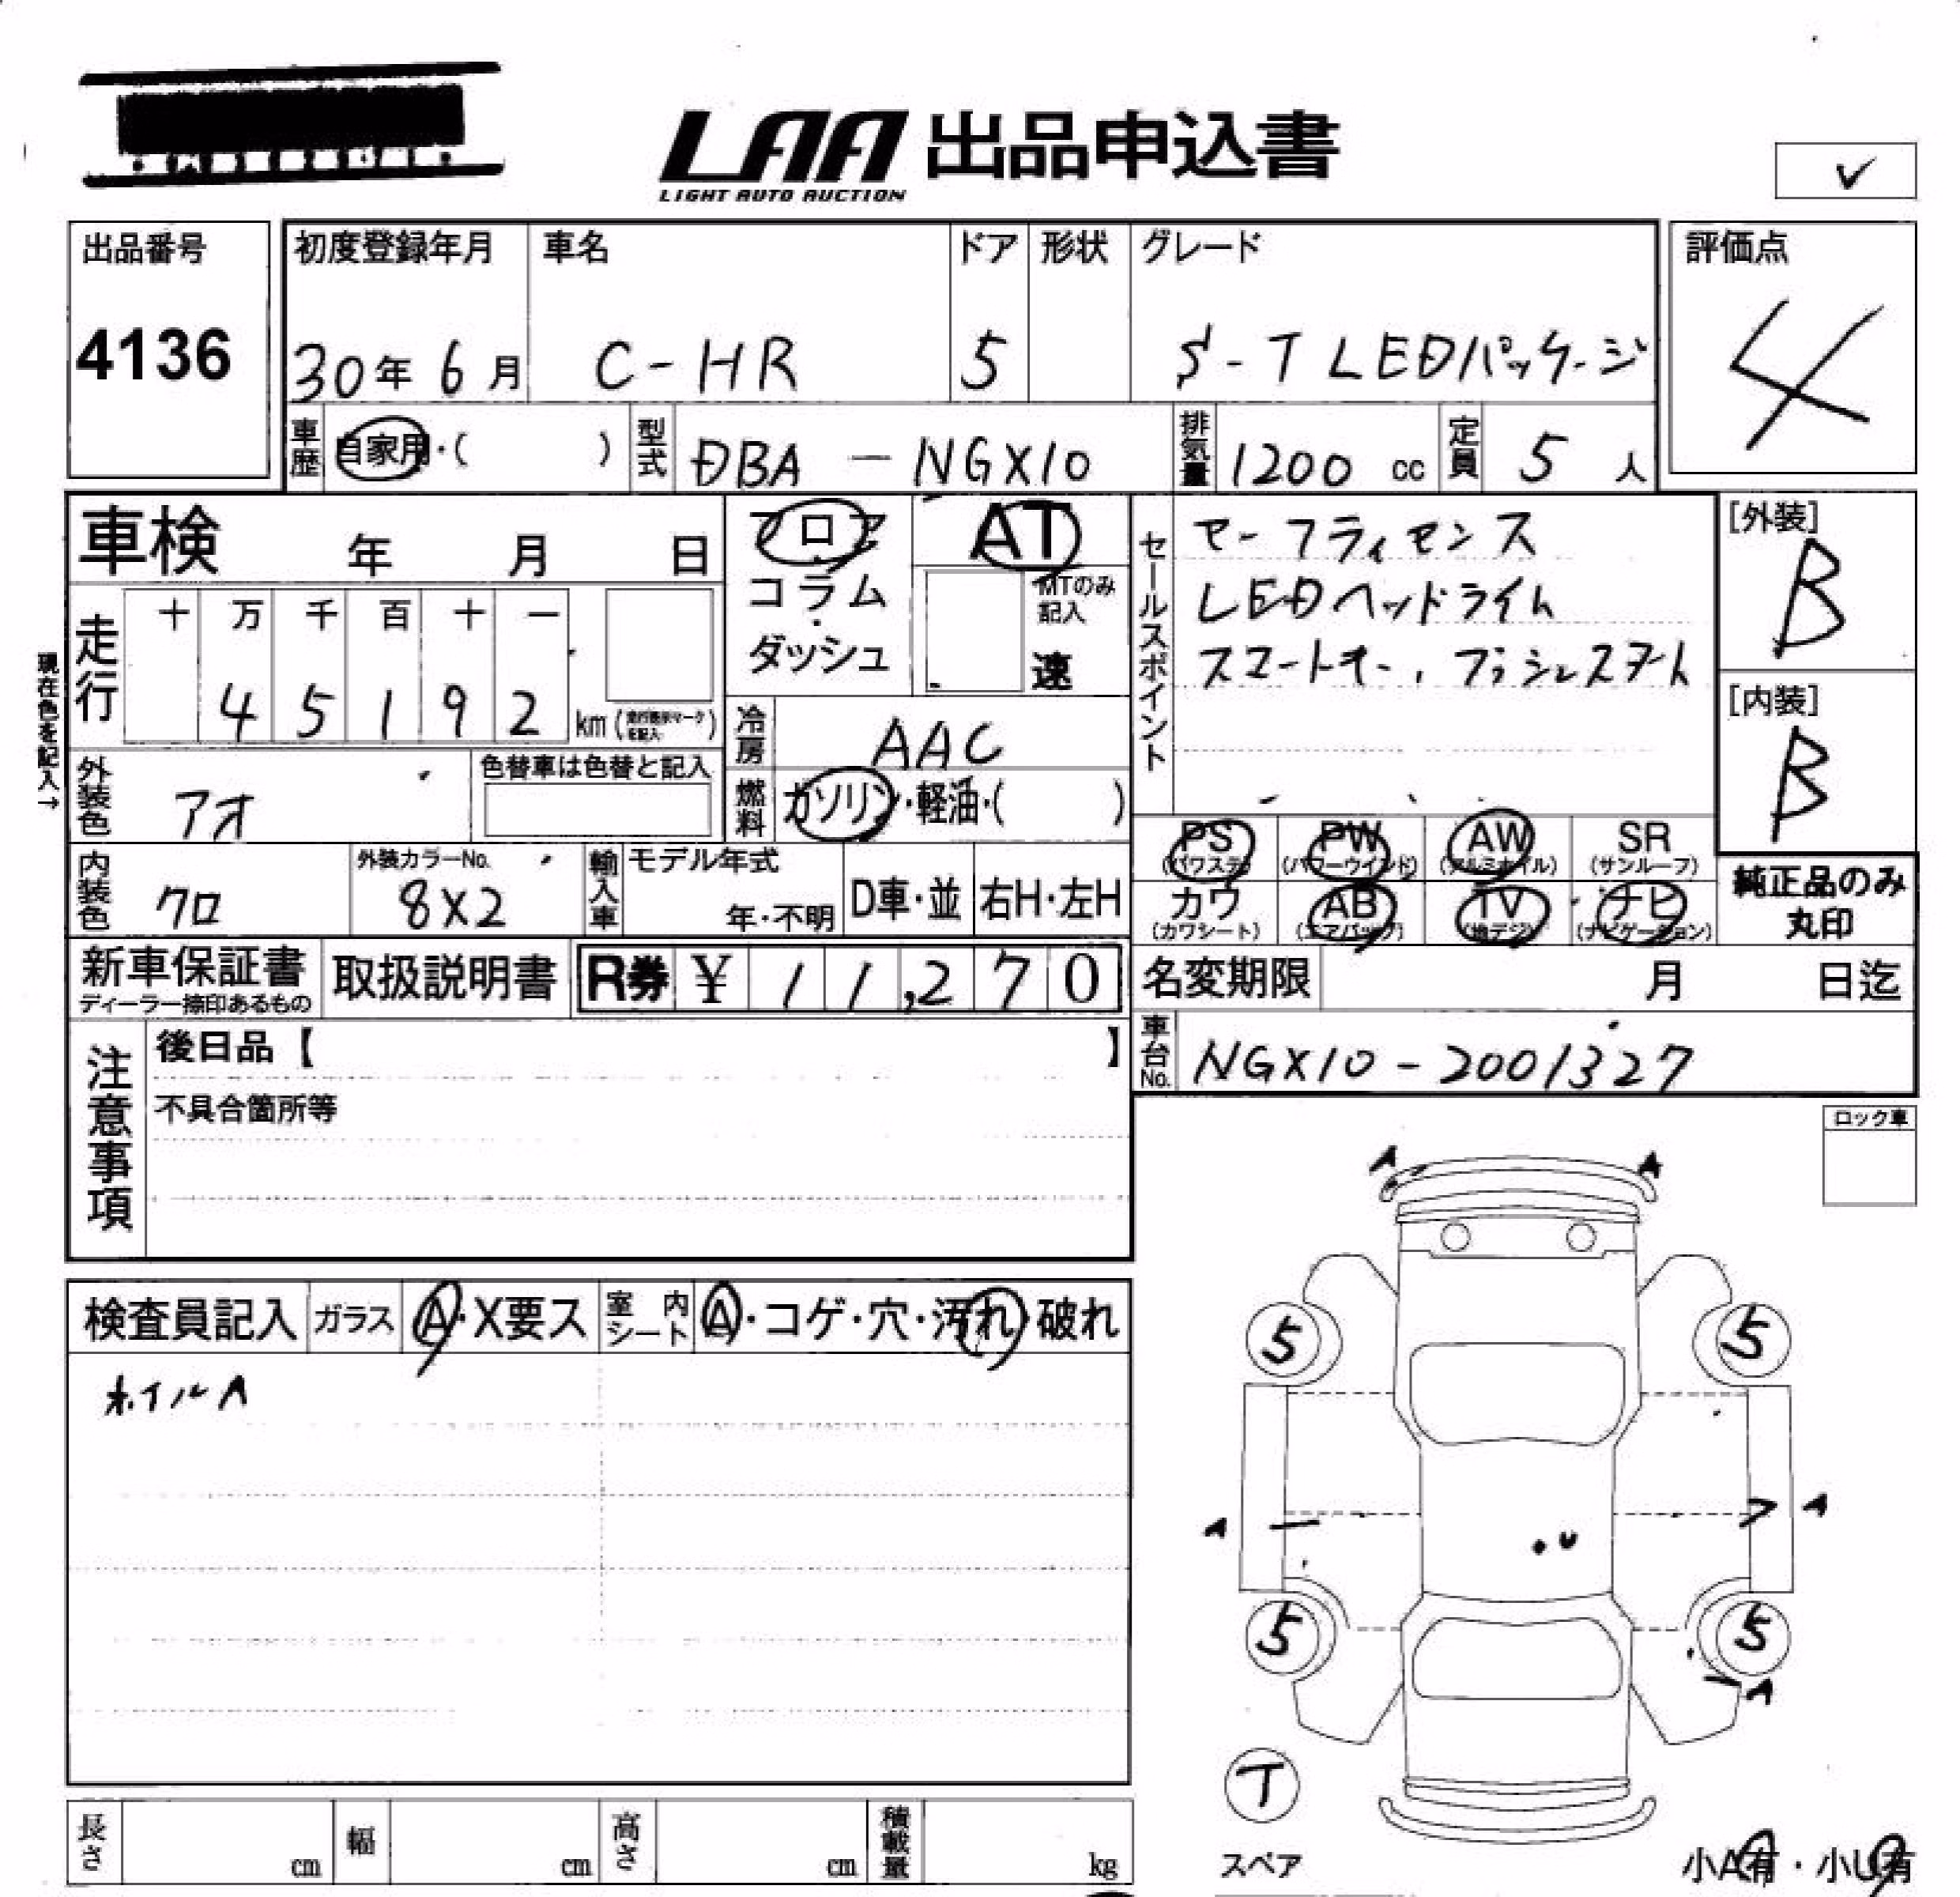 LAA 出品申込書
LIGHT AUTO AUCTION
✓
出品番号 初度登録年月 車名 ドア 形状 グレード 評価点
4136 30年 6月 C-HR 5 S-T LEDパッケージ 4
車歴 自家用・( ) 型式 DBA-NGX10 排気量 1200 cc 定員 5 人
車検 年 月 日
フロア・コラム・ダッシュ
AT
MTのみ記入
速
セールスポイント
セーフティセンス
LEDヘッドライト
スマートキー,プッシュスタート
[外装]
B
[内装]
B
現在色を記入→
走行 十 万 千 百 十 一
4 5 1 9 2 km (走行表示マークを記入)
冷房 AAC
外装色 アオ 色替車は色替と記入
燃料 ガソリン・軽油・( )
PS (パワステ) PW (パワーウインド) AW (アルミホイル) SR (サンルーフ)
カワ (カワシート) AB (エアバッグ) TV (地デジ) ナビ (ナビゲーション)
純正品のみ
丸印
内装色 クロ 外装カラーNo. 8X2 輸入車 モデル年式 年・不明 D車・並 右H・左H
新車保証書 取扱説明書 R券 ¥ 11,270
ディーラー捺印あるもの
名変期限 月 日迄
車台No. NGX10-2001327
注意事項
後日品【 】
不具合箇所等
ロック車
検査員記入 ガラス A・X要ス 室内シート A・コゲ・穴・汚れ・破れ
ホイルA
A A
5 5
A A
U
5 5
A
T
スペア
小A有・小U有
長さ cm 幅 cm 高さ cm 積載量 kg